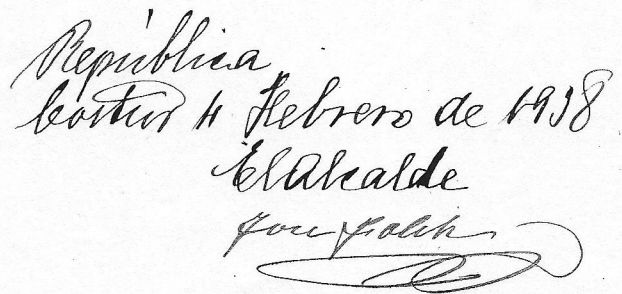 República
Costur 4 Febrero de 1938
El Alcalde
José Folch